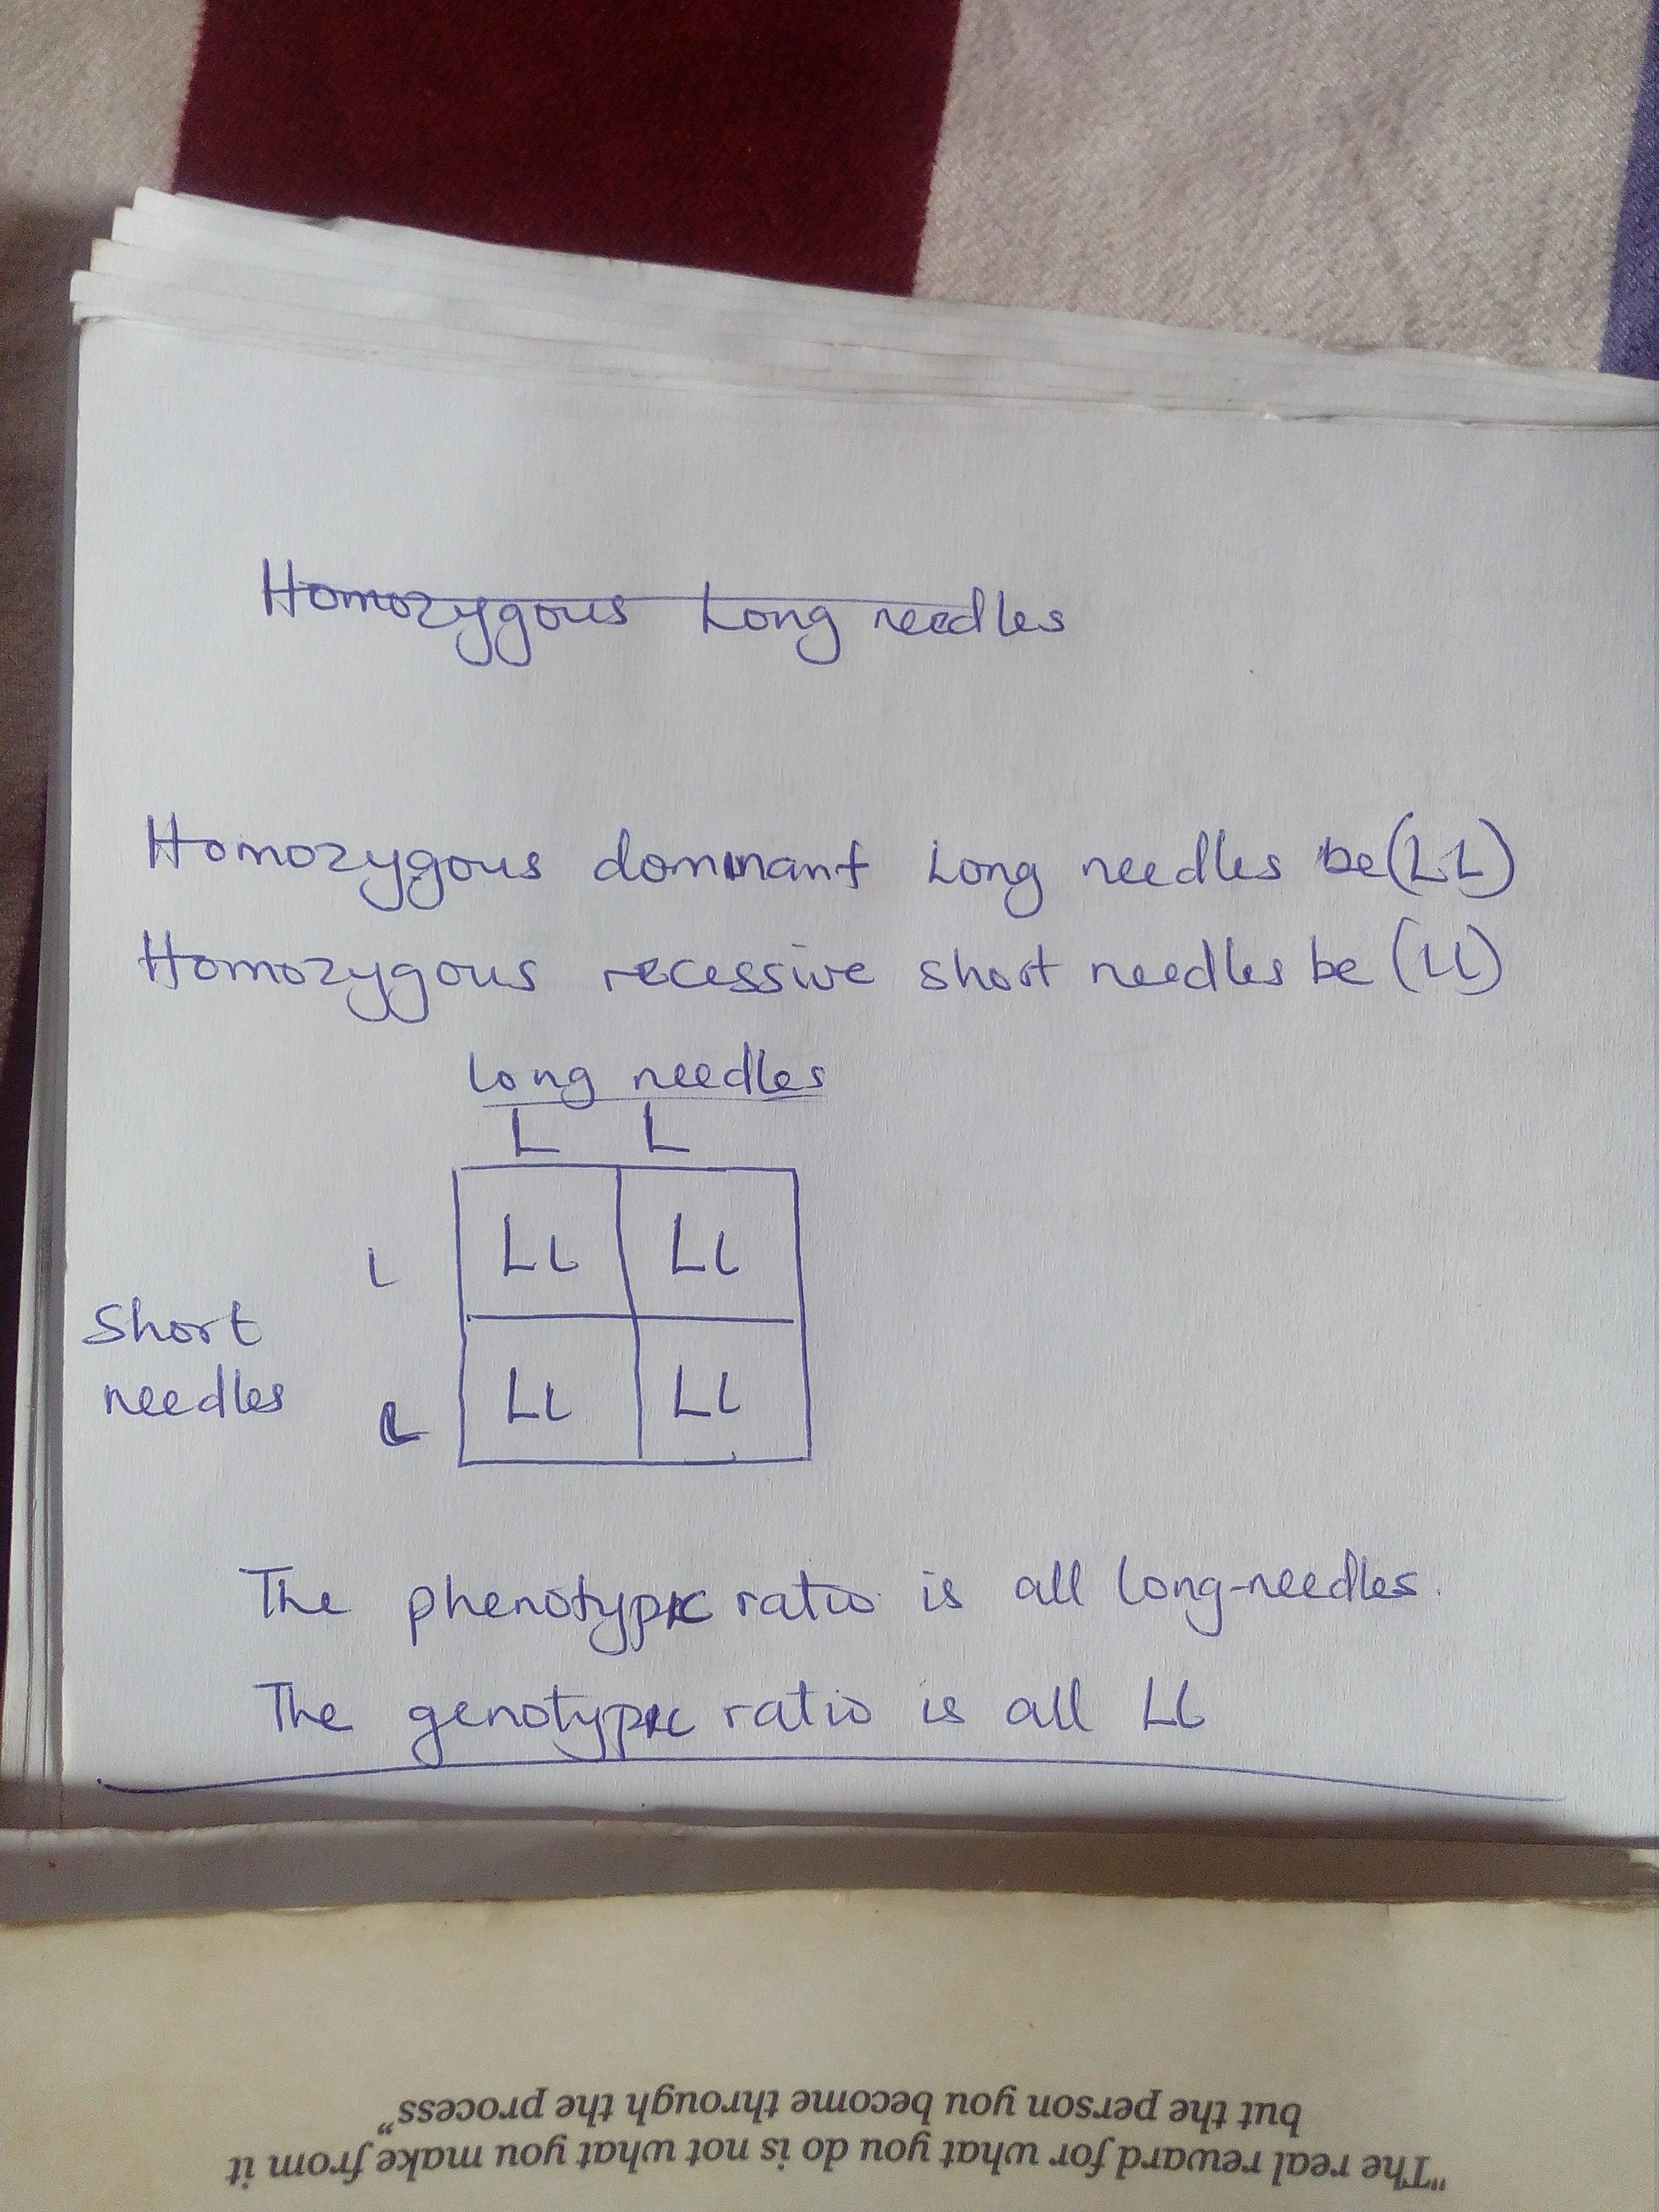 Homozygous Long needles
Homozygous dominant Long needles be (LL)
Homozygous recessive short needles be (ll)
long needles
L L
l Ll Ll
Short
needles
l Ll Ll
The phenotypic ratio is all long-needles.
The genotypic ratio is all Ll
"The real reward for what you do is not what you make from it
but the person you become through the process"